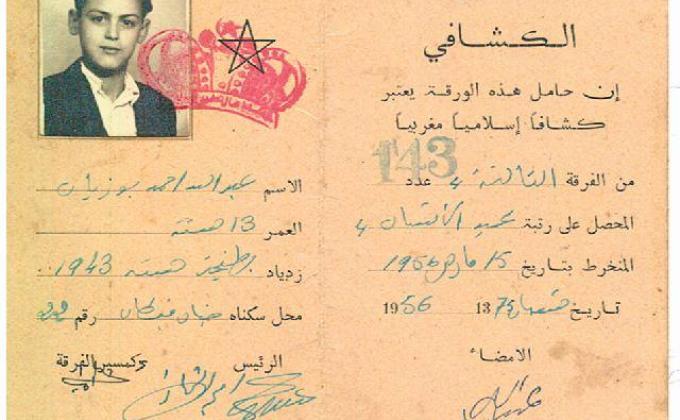 الكشافي
إن حامل هذه الورقة يعتبر
كشافاً إسلامياً مغربياً
143
من الفرقة الثالثة عدد
المحصل على رتبة
المنخرط بتاريخ 15 مارس 1956
تاريخ 1375 1956
الامضاء
الاسم عبد الله احمد بوزيان
العمر 13 سنة
زدياد بطنجة سنة 1943
محل سكناه رقم 22
الرئيس
كمسير الفرقة